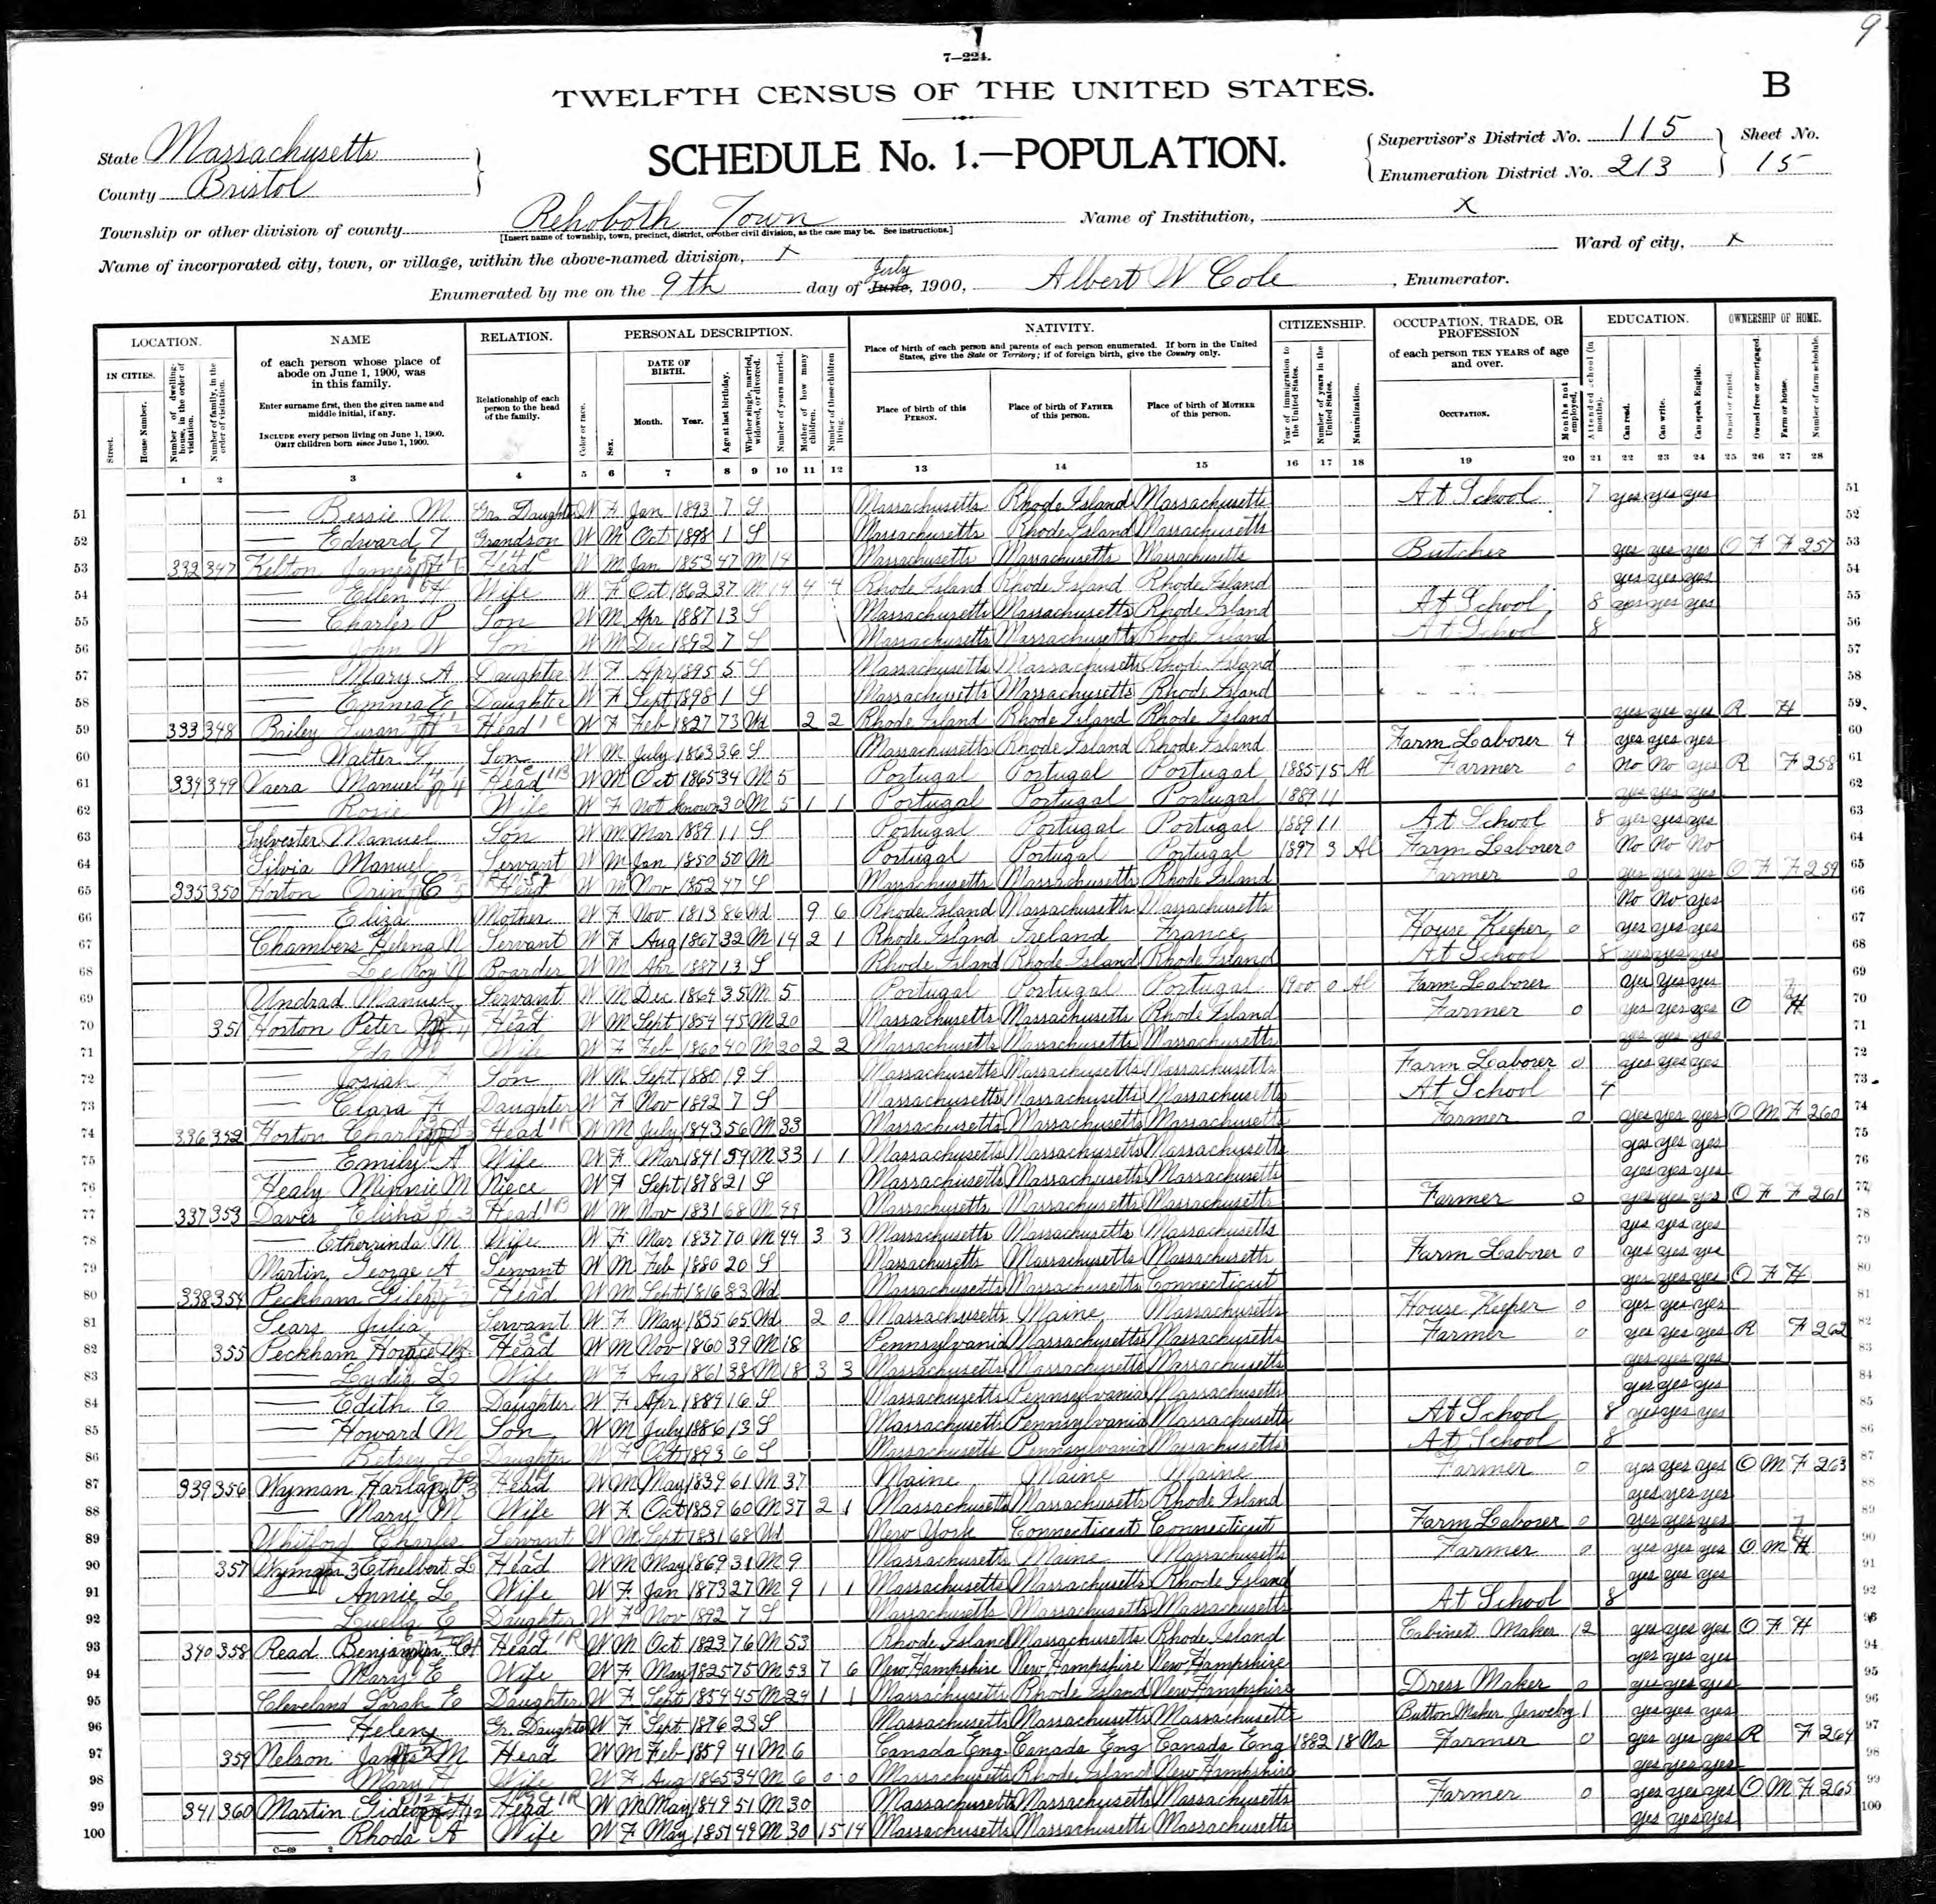 9
7—224.
TWELFTH CENSUS OF THE UNITED STATES.
B
State Massachusetts
County Bristol
SCHEDULE No. 1.—POPULATION.
Supervisor's District No. 115
Enumeration District No. 213
Sheet No.
15
Township or other division of county Rehoboth Town
[Insert name of township, town, precinct, district, or other civil division, as the case may be. See instructions.]
Name of Institution, X
Name of incorporated city, town, or village, within the above-named division, X
Ward of city, X
Enumerated by me on the 9th day of June, July 1900, Albert W Cole, Enumerator.
LOCATION. NAME RELATION. PERSONAL DESCRIPTION. NATIVITY. CITIZENSHIP. OCCUPATION, TRADE, OR PROFESSION EDUCATION. OWNERSHIP OF HOME.
IN CITIES.
Street.
House Number.
Number of dwelling-house, in the order of visitation.
Number of family, in the order of visitation.
of each person whose place of abode on June 1, 1900, was in this family.
Enter surname first, then the given name and middle initial, if any.
INCLUDE every person living on June 1, 1900.
OMIT children born since June 1, 1900.
Relationship of each person to the head of the family.
Color or race.
Sex.
DATE OF BIRTH.
Month. Year.
Age at last birthday.
Whether single, married, widowed, or divorced.
Number of years married.
Mother of how many children.
Number of these children living.
Place of birth of each person and parents of each person enumerated. If born in the United States, give the State or Territory; if of foreign birth, give the Country only.
Place of birth of this PERSON.
Place of birth of FATHER of this person.
Place of birth of MOTHER of this person.
Year of immigration to the United States.
Number of years in the United States.
Naturalization.
of each person TEN YEARS of age and over.
OCCUPATION.
Months not employed.
Attended school (in months).
Can read.
Can write.
Can speak English.
Owned or rented.
Owned free or mortgaged.
Farm or house.
Number of farm schedule.
1 2 3 4 5 6 7 8 9 10 11 12 13 14 15 16 17 18 19 20 21 22 23 24 25 26 27 28
51 — Bessie M Gr. Daughter W F Jan 1893 7 S Massachusetts Rhode Island Massachusetts At School 7 yes yes yes 51
52 — Edward T Grandson W M Oct 1898 1 S Massachusetts Rhode Island Massachusetts 52
53 332 347 Kelton James Head W M Jan 1853 47 M 14 Massachusetts Massachusetts Massachusetts Butcher yes yes yes O F F 257 53
54 — Ellen H Wife W F Oct 1862 37 M 14 4 4 Rhode Island Rhode Island Rhode Island yes yes yes 54
55 — Charles P Son W M Apr 1887 13 S Massachusetts Massachusetts Rhode Island At School 8 yes yes yes 55
56 — John W Son W M Dec 1892 7 S Massachusetts Massachusetts Rhode Island At School 8 56
57 — Mary A Daughter W F Apr 1895 5 S Massachusetts Massachusetts Rhode Island 57
58 — Emma E Daughter W F Sept 1898 1 S Massachusetts Massachusetts Rhode Island 58
59 333 348 Bailey Susan H Head W F Feb 1827 73 Wd 2 2 Rhode Island Rhode Island Rhode Island yes yes yes R H 59
60 — Walter Son W M July 1863 36 S Massachusetts Rhode Island Rhode Island Farm Laborer 4 yes yes yes 60
61 334 349 Vaera Manuel Head W M Oct 1865 34 M 5 Portugal Portugal Portugal 1885 15 Al Farmer 0 No No yes R F 258 61
62 — Rosie Wife W F Not known 30 M 5 1 1 Portugal Portugal Portugal 1889 11 yes yes yes 62
63 Sylvester Manuel Son W M Mar 1889 11 S Portugal Portugal Portugal 1889 11 At School 8 yes yes yes 63
64 Silvia Manuel Servant W M Jan 1850 50 M Portugal Portugal Portugal 1897 3 Al Farm Laborer 0 No No No 64
65 335 350 Horton Orin C Head W M Nov 1852 47 S Massachusetts Massachusetts Rhode Island Farmer 0 yes yes yes O F F 259 65
66 — Eliza Mother W F Nov 1813 86 Wd 9 6 Rhode Island Massachusetts Massachusetts No No yes 66
67 Chambers Helena N Servant W F Aug 1867 32 M 14 2 1 Rhode Island Ireland France House Keeper 0 yes yes yes 67
68 — Le Roy N Boarder W M Apr 1887 13 S Rhode Island Rhode Island Rhode Island At School 8 yes yes yes 68
69 Undrad Manuel Servant W M Dec 1864 35 M 5 Portugal Portugal Portugal 1900 0 Al Farm Laborer yes yes yes 69
70 351 Horton Peter Head W M Sept 1854 45 M 20 Massachusetts Massachusetts Rhode Island Farmer 0 yes yes yes O H 70
71 — Ida M Wife W F Feb 1860 40 M 20 2 2 Massachusetts Massachusetts Massachusetts yes yes yes 71
72 — Josiah F Son W M Sept 1880 19 S Massachusetts Massachusetts Massachusetts Farm Laborer 0 yes yes yes 72
73 — Clara F Daughter W F Nov 1892 7 S Massachusetts Massachusetts Massachusetts At School 4 73
74 336 352 Horton Charles Head W M July 1843 56 M 33 Massachusetts Massachusetts Massachusetts Farmer 0 yes yes yes O M F 260 74
75 — Emily A Wife W F Mar 1841 59 M 33 1 1 Massachusetts Massachusetts Massachusetts yes yes yes 75
76 Healy Minnie M Niece W F Sept 1878 21 S Massachusetts Massachusetts Massachusetts yes yes yes 76
77 337 353 Davis Elisha Head W M Nov 1831 68 M 44 Massachusetts Massachusetts Massachusetts Farmer 0 yes yes yes O F F 261 77
78 — Etherinda M Wife W F Mar 1837 70 M 44 3 3 Massachusetts Massachusetts Massachusetts yes yes yes 78
79 Martin George A Servant W M Feb 1880 20 S Massachusetts Massachusetts Massachusetts Farm Laborer 0 yes yes yes 79
80 338 354 Peckham Giles Head W M Sept 1816 83 Wd Massachusetts Massachusetts Connecticut yes yes yes O F H 80
81 Sears Julia Servant W F May 1835 65 Wd 2 0 Massachusetts Maine Massachusetts House Keeper 0 yes yes yes 81
82 355 Peckham Horace M Head W M Nov 1860 39 M 18 Pennsylvania Massachusetts Massachusetts Farmer 0 yes yes yes R F 262 82
83 — Lydia L Wife W F Aug 1861 38 M 18 3 3 Massachusetts Massachusetts Massachusetts yes yes yes 83
84 — Edith E Daughter W F Apr 1884 16 S Massachusetts Pennsylvania Massachusetts yes yes yes 84
85 — Howard M Son W M July 1886 13 S Massachusetts Pennsylvania Massachusetts At School 8 yes yes yes 85
86 — Betsey L Daughter W F Oct 1893 6 S Massachusetts Pennsylvania Massachusetts At School 8 86
87 339 356 Wyman Harlan Head W M May 1839 61 M 37 Maine Maine Maine Farmer 0 yes yes yes O M F 263 87
88 — Mary M Wife W F Oct 1839 60 M 37 2 1 Massachusetts Massachusetts Rhode Island yes yes yes 88
89 Whitford Charles Servant W M Sept 1831 68 Wd New York Connecticut Connecticut Farm Laborer 0 yes yes yes 89
90 357 Wyman Ethelbert L Head W M May 1869 31 M 9 Massachusetts Maine Massachusetts Farmer 0 yes yes yes O M H 90
91 — Annie L Wife W F Jan 1873 27 M 9 1 1 Massachusetts Massachusetts Rhode Island yes yes yes 91
92 — Luella E Daughter W F Nov 1892 7 S Massachusetts Massachusetts Massachusetts At School 8 92
93 340 358 Read Benjamin Head W M Oct 1823 76 M 53 Rhode Island Massachusetts Rhode Island Cabinet Maker 12 yes yes yes O F H 93
94 — Mary E Wife W F May 1825 75 M 53 7 6 New Hampshire New Hampshire New Hampshire yes yes yes 94
95 Cleveland Sarah E Daughter W F Sept 1854 45 M 24 1 1 Massachusetts Rhode Island New Hampshire Dress Maker 0 yes yes yes 95
96 — Helen Gr. Daughter W F Sept 1876 23 S Massachusetts Massachusetts Massachusetts Button Maker Jewelry 1 yes yes yes 96
97 359 Nelson James M Head W M Feb 1859 41 M 6 Canada Eng Canada Eng Canada Eng 1882 18 Na Farmer 0 yes yes yes R F 264 97
98 — Mary F Wife W F Aug 1865 34 M 6 0 0 Massachusetts Rhode Island New Hampshire yes yes yes 98
99 341 360 Martin Gideon Head W M May 1849 51 M 30 Massachusetts Massachusetts Massachusetts Farmer 0 yes yes yes O M F 265 99
100 — Rhoda A Wife W F May 1851 49 M 30 15 14 Massachusetts Massachusetts Massachusetts yes yes yes 100
C—69 2